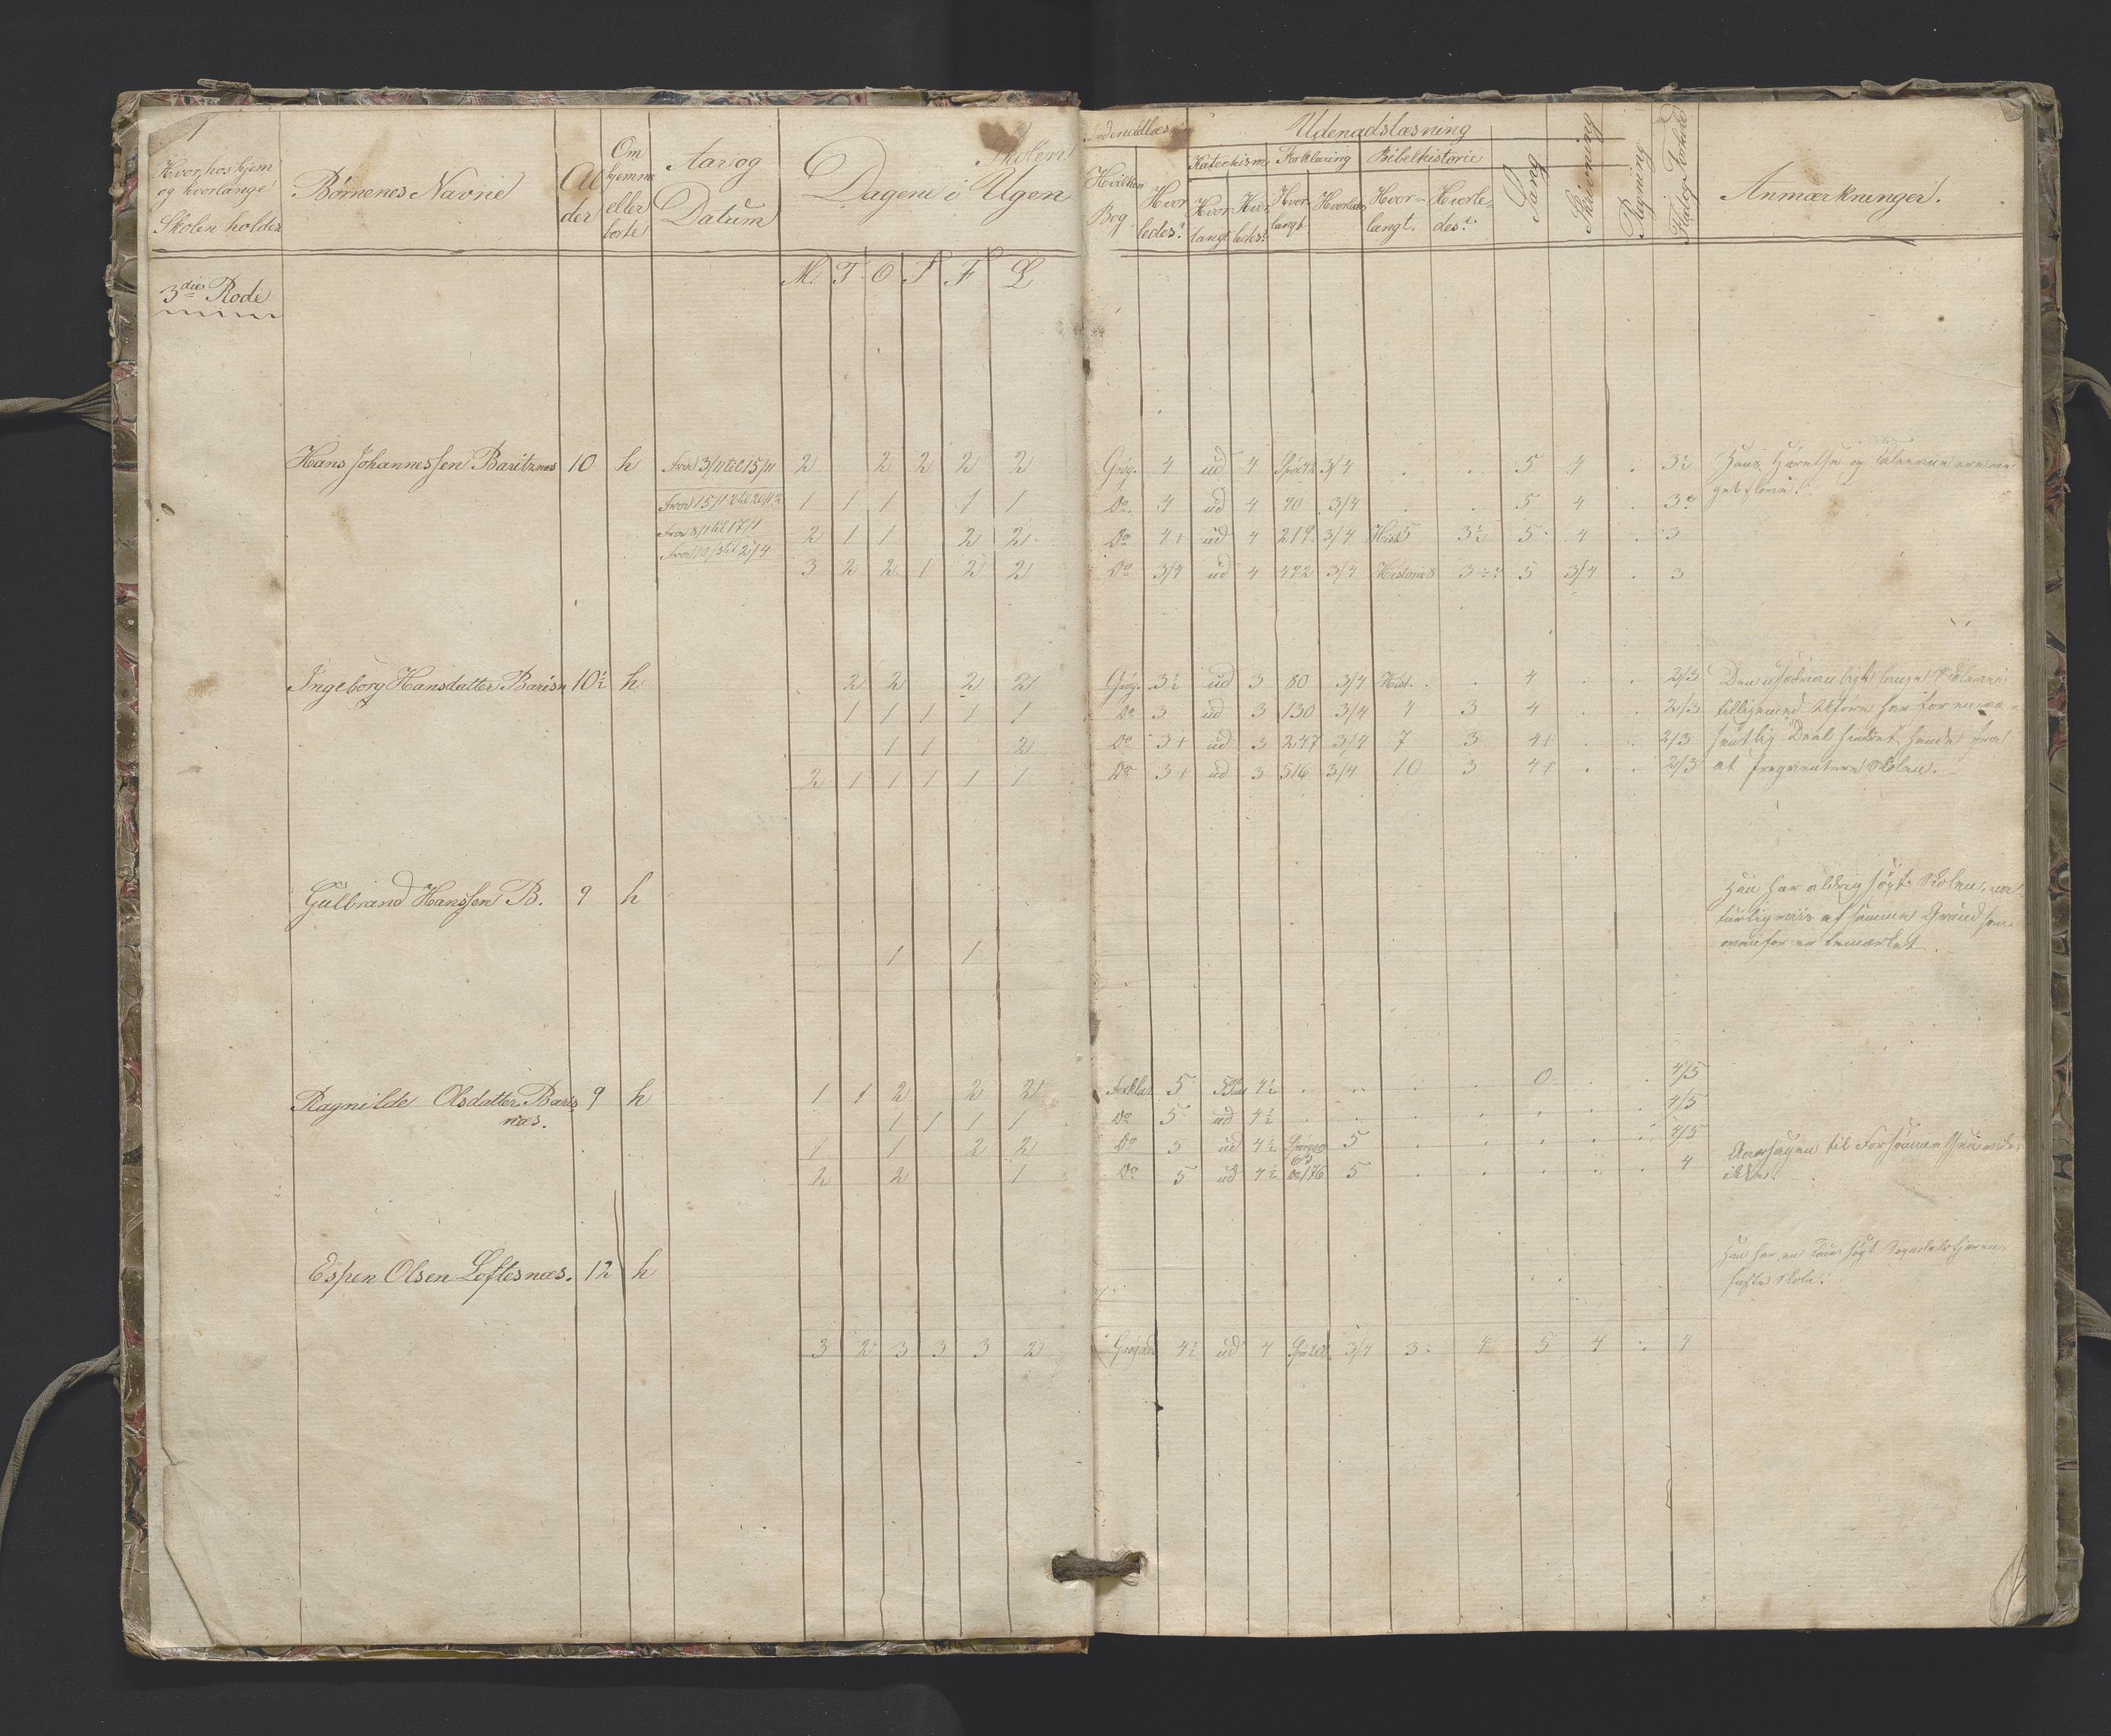 Hvor, hos hjem og hvorlænge Skolen holdes
Børnenes Navne
Alder
Om hjemme eller borte
Aar og Datum
Skolen
Dagene i Ugen
Indenadlæsning
Hvilken Bog
Hvorledes?
Udenadslæsning
Katechism
Hvorlangt
Hvorledes?
Forklaring
Hvorlangt
Hvorledes
Bibelhistorie
Hvorlangt.
Hvorledes?
Sang
Skrivning
Regning
Flid og Forhold
Anmærkninger.
M. T. O. T F L
3die Rode
Hans Johannessen Baritznæs 10 h Fra 3/11 til 15/11 2 2 2 2 2 4 ud 4 3/4 . . 5 4 . 3½
Fra 15/12 til 20/12 1 1 1 1 1 Do. 4 ud 4 90 3/4 . . 5 4 .
Fra 8/1 til 17/1 2 1 1 2 2 Do 4+ ud 4 219 3/4 Hist 5 3½ 5 4 . 3
til 2/4 3 2 2 1 2 2 Do 3/4 ud 4 492 3/4 Historie 8 5 3/4 . 3
Ingeborg Hansdatter Barisn 10½ h 2 2 2 2 3½ ud 3 80 3/4 Hist. . 4 . . 2/3
1 1 1 1 1 Do 3 ud 3 130 3/4 4 3 4 . . 2/3 tilligemed Uføre har for en væ-
1 1 2 Do 3+ ud 3 247 3/4 7 3 4+ . . 2/3 sentlig Deel hindret hende fra
2 1 1 1 1 1 Do 3+ ud 3 516 3/4 10 3 4+ . . 2/3 at freqventere Skolen.
Gulbrand Hanssen B. 9 h
Han har aldrig søgt Skolen, na-
turligviis af samme Grund som
ovenfor er bemærket.
1 1
Ragnilde Olsdatter Baris 9 h 1 1 2 2 2 Forklar 5 4½ . . . . 0 . . 4/5
næs.
1 1 1 1 Do 5 ud 4½ . . . . . . . 4/5
1 1 2 2 Do 5 ud 4½ 63 5 . . . . . 4/5
2 2 1 Do 5 ud 4½ Do 176 5 . . . . . 4
Aarsagen til Forsømmelsen vides
ikke.
Espen Olsen Loftesnæs. 12 h
Han har en Tour søgt Sogndalsfjærens
faste Skole.
3 2 3 3 3 2 4½ ud 4 3/4 4 5 4 4